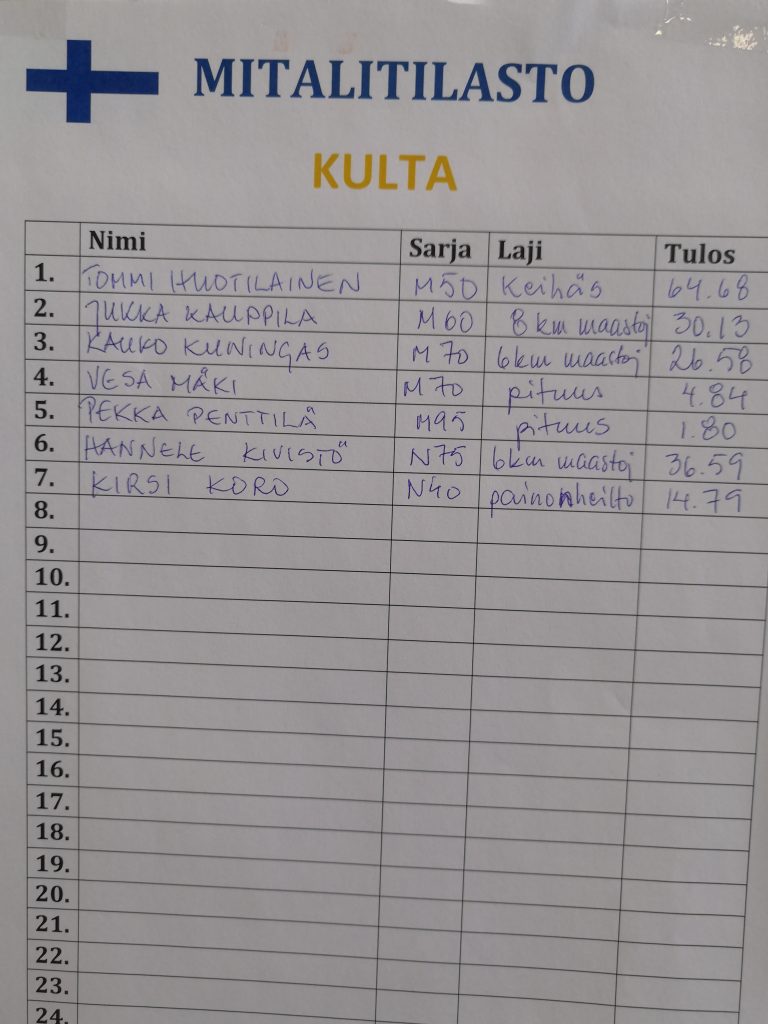 MITALITILASTO
KULTA
Nimi Sarja Laji Tulos
1. TOMMI HUOTILAINEN M50 Keihäs 64.68
2. JUKKA KAUPPILA M60 8 km maastoj 30.13
3. KAUKO KUNINGAS M70 6km maastoj 26.58
4. VESA MÄKI M70 pituus 4.84
5. PEKKA PENTTILÄ M95 pituus 1.80
6. HANNELE KIVISTÖ N75 6km maastoj 36.59
7. KIRSI KORO N40 painonheitto 14.79
8.
9.
10.
11.
12.
13.
14.
15.
16.
17.
18.
19.
20.
21.
22.
23.
24.